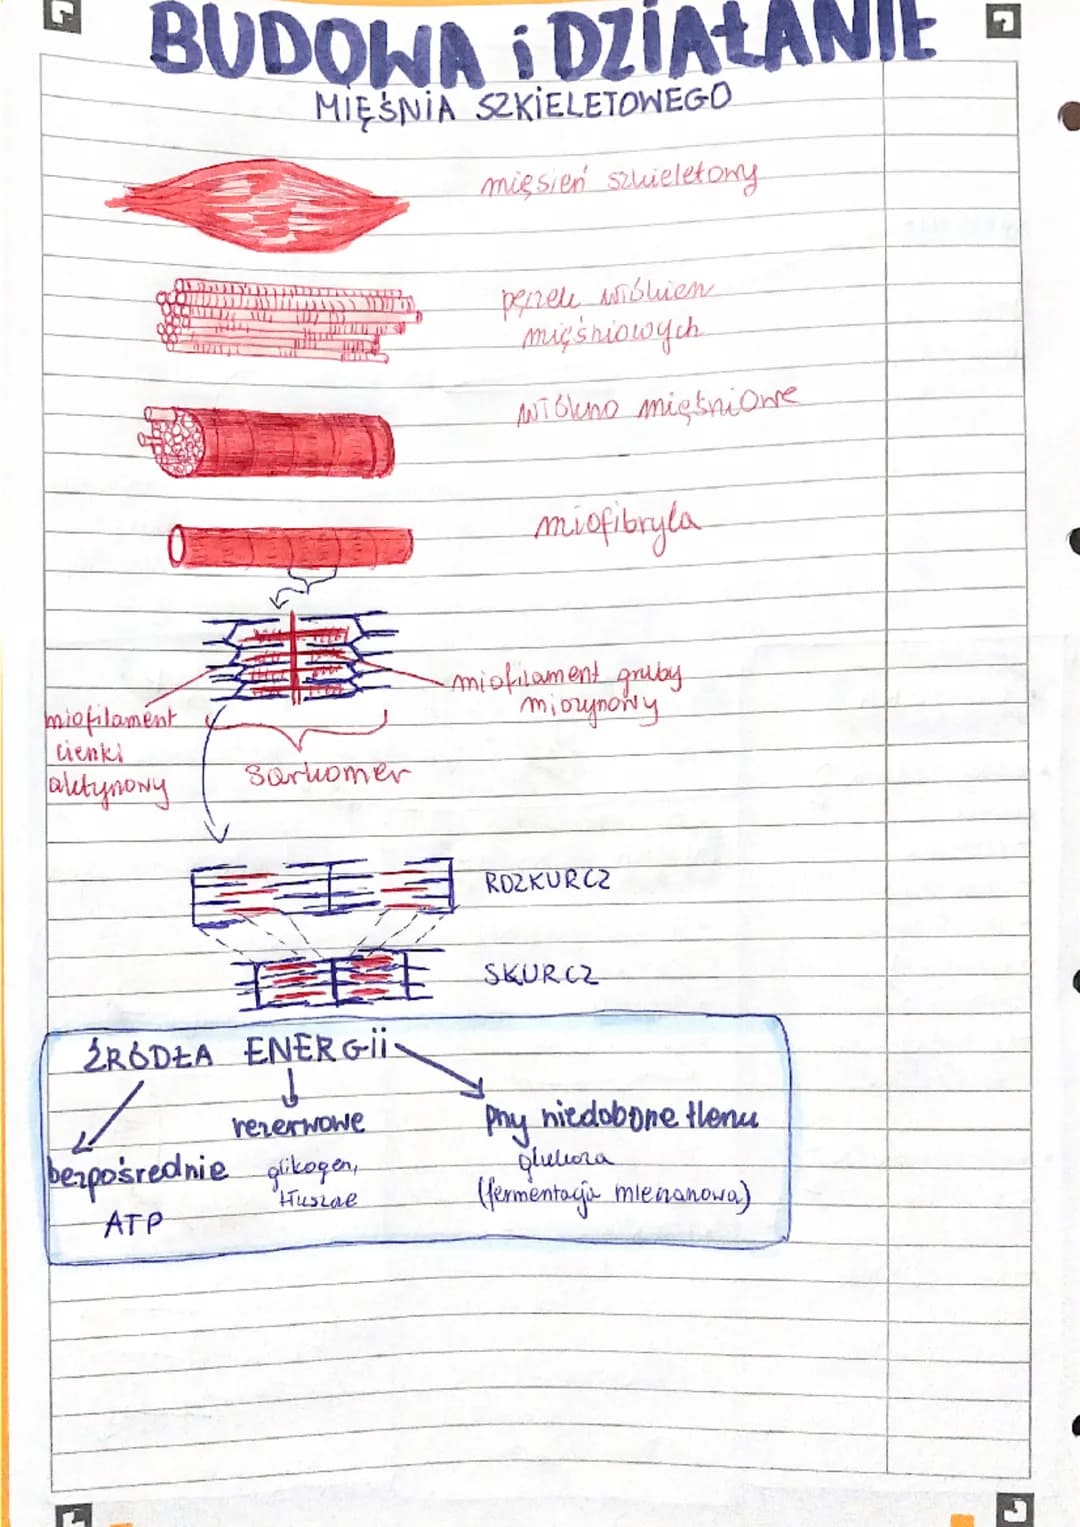 BUDOWA i DZIAŁANIE
MIĘŚNIA SZKiELETOWEGO
mięsień szkieletowy
pęczek włókien
mięśniowych
włókno mięśniowe
miofibryla
miofilament gruby
miozynowy
miofilament
cienki
aktynowy
sarkomer
ROZKURCZ
SKURCZ
ŹRÓDŁA ENERGii
bezpośrednie
ATP
rezerwowe
glikogen,
tłuszcze
przy niedoborze tlenu
glukoza
(fermentacja mleczanowa)